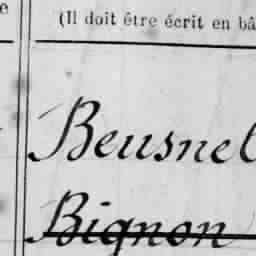 (Il doit être écrit en bâ
Beusnel
Bignon